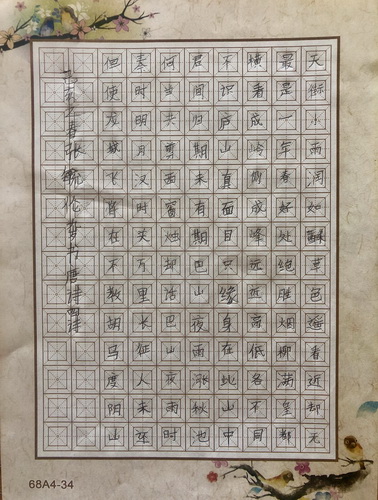 天街小雨润如酥草色遥看近却无
最是一年春好处绝胜烟柳满皇都
横看成岭侧成峰远近高低各不同
不识庐山真面目只缘身在此山中
君问归期未有期巴山夜雨涨秋池
何当共剪西窗烛却话巴山夜雨时
秦时明月汉时关万里长征人未还
但使龙城飞将在不教胡马度阴山
之春张毓伦书唐诗四
68A4-34